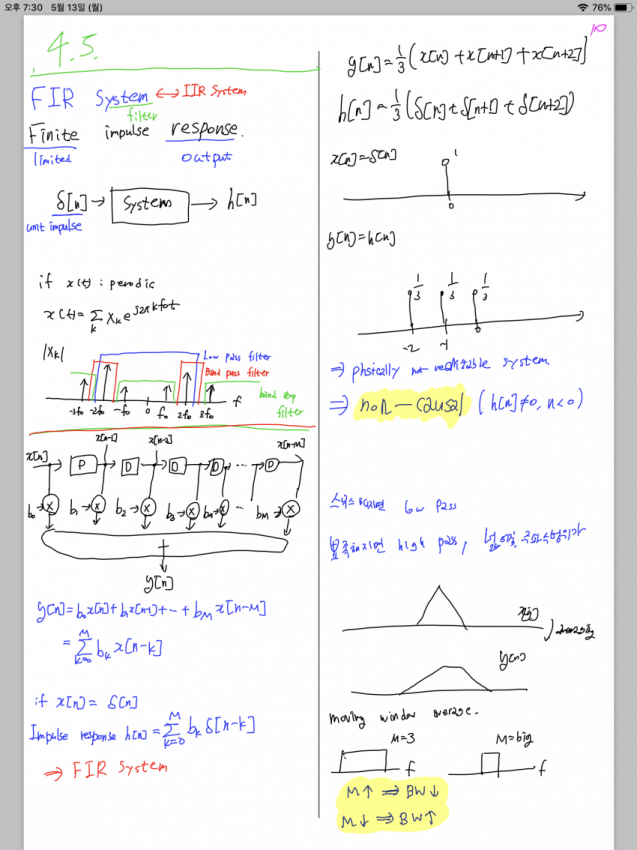 오후 7:30 5월 13일 (월)
76%
10
4.5.
FIR System ↔ IIR System
filter
Finite impulse response.
limited output
δ[n] → System → h[n]
unit impulse
if x(t) : perodic
x(t) = Σ Xₖ e^j2πkf₀t
k
|Xₖ|
Low pass filter
Band pass filter
band stop
filter
-3f₀ -2f₀ -f₀ 0 f₀ 2f₀ 3f₀ f
x[n-1] x[n-2] x[n-M]
x[n] D D D D ... D
b₀ → X b₁ → X b₂ → X b₃ → X b₄ → X ... bM → X
+
y[n]
y[n] = b₀x[n] + b₁x[n-1] + ... + bM x[n-M]
= Σ(k=0, M) bₖ x[n-k]
if x[n] = δ[n]
Impulse response h[n] = Σ(k=0, M) bₖ δ[n-k]
⇒ FIR System
y[n] = 1/3 (x[n] + x[n+1] + x[n+2])
h[n] = 1/3 (δ[n] + δ[n+1] + δ[n+2])
x[n] = δ[n]
1
0
y[n] = h[n]
1/3 1/3 1/3
-2 -1 0
⇒ phsically not realizable system
⇒ non-causal (h[n] ≠ 0, n < 0)
low pass
high pass,
y[n]
moving window average.
M=3 M=big
f f
M↑ ⇒ BW↓
M↓ ⇒ BW↑